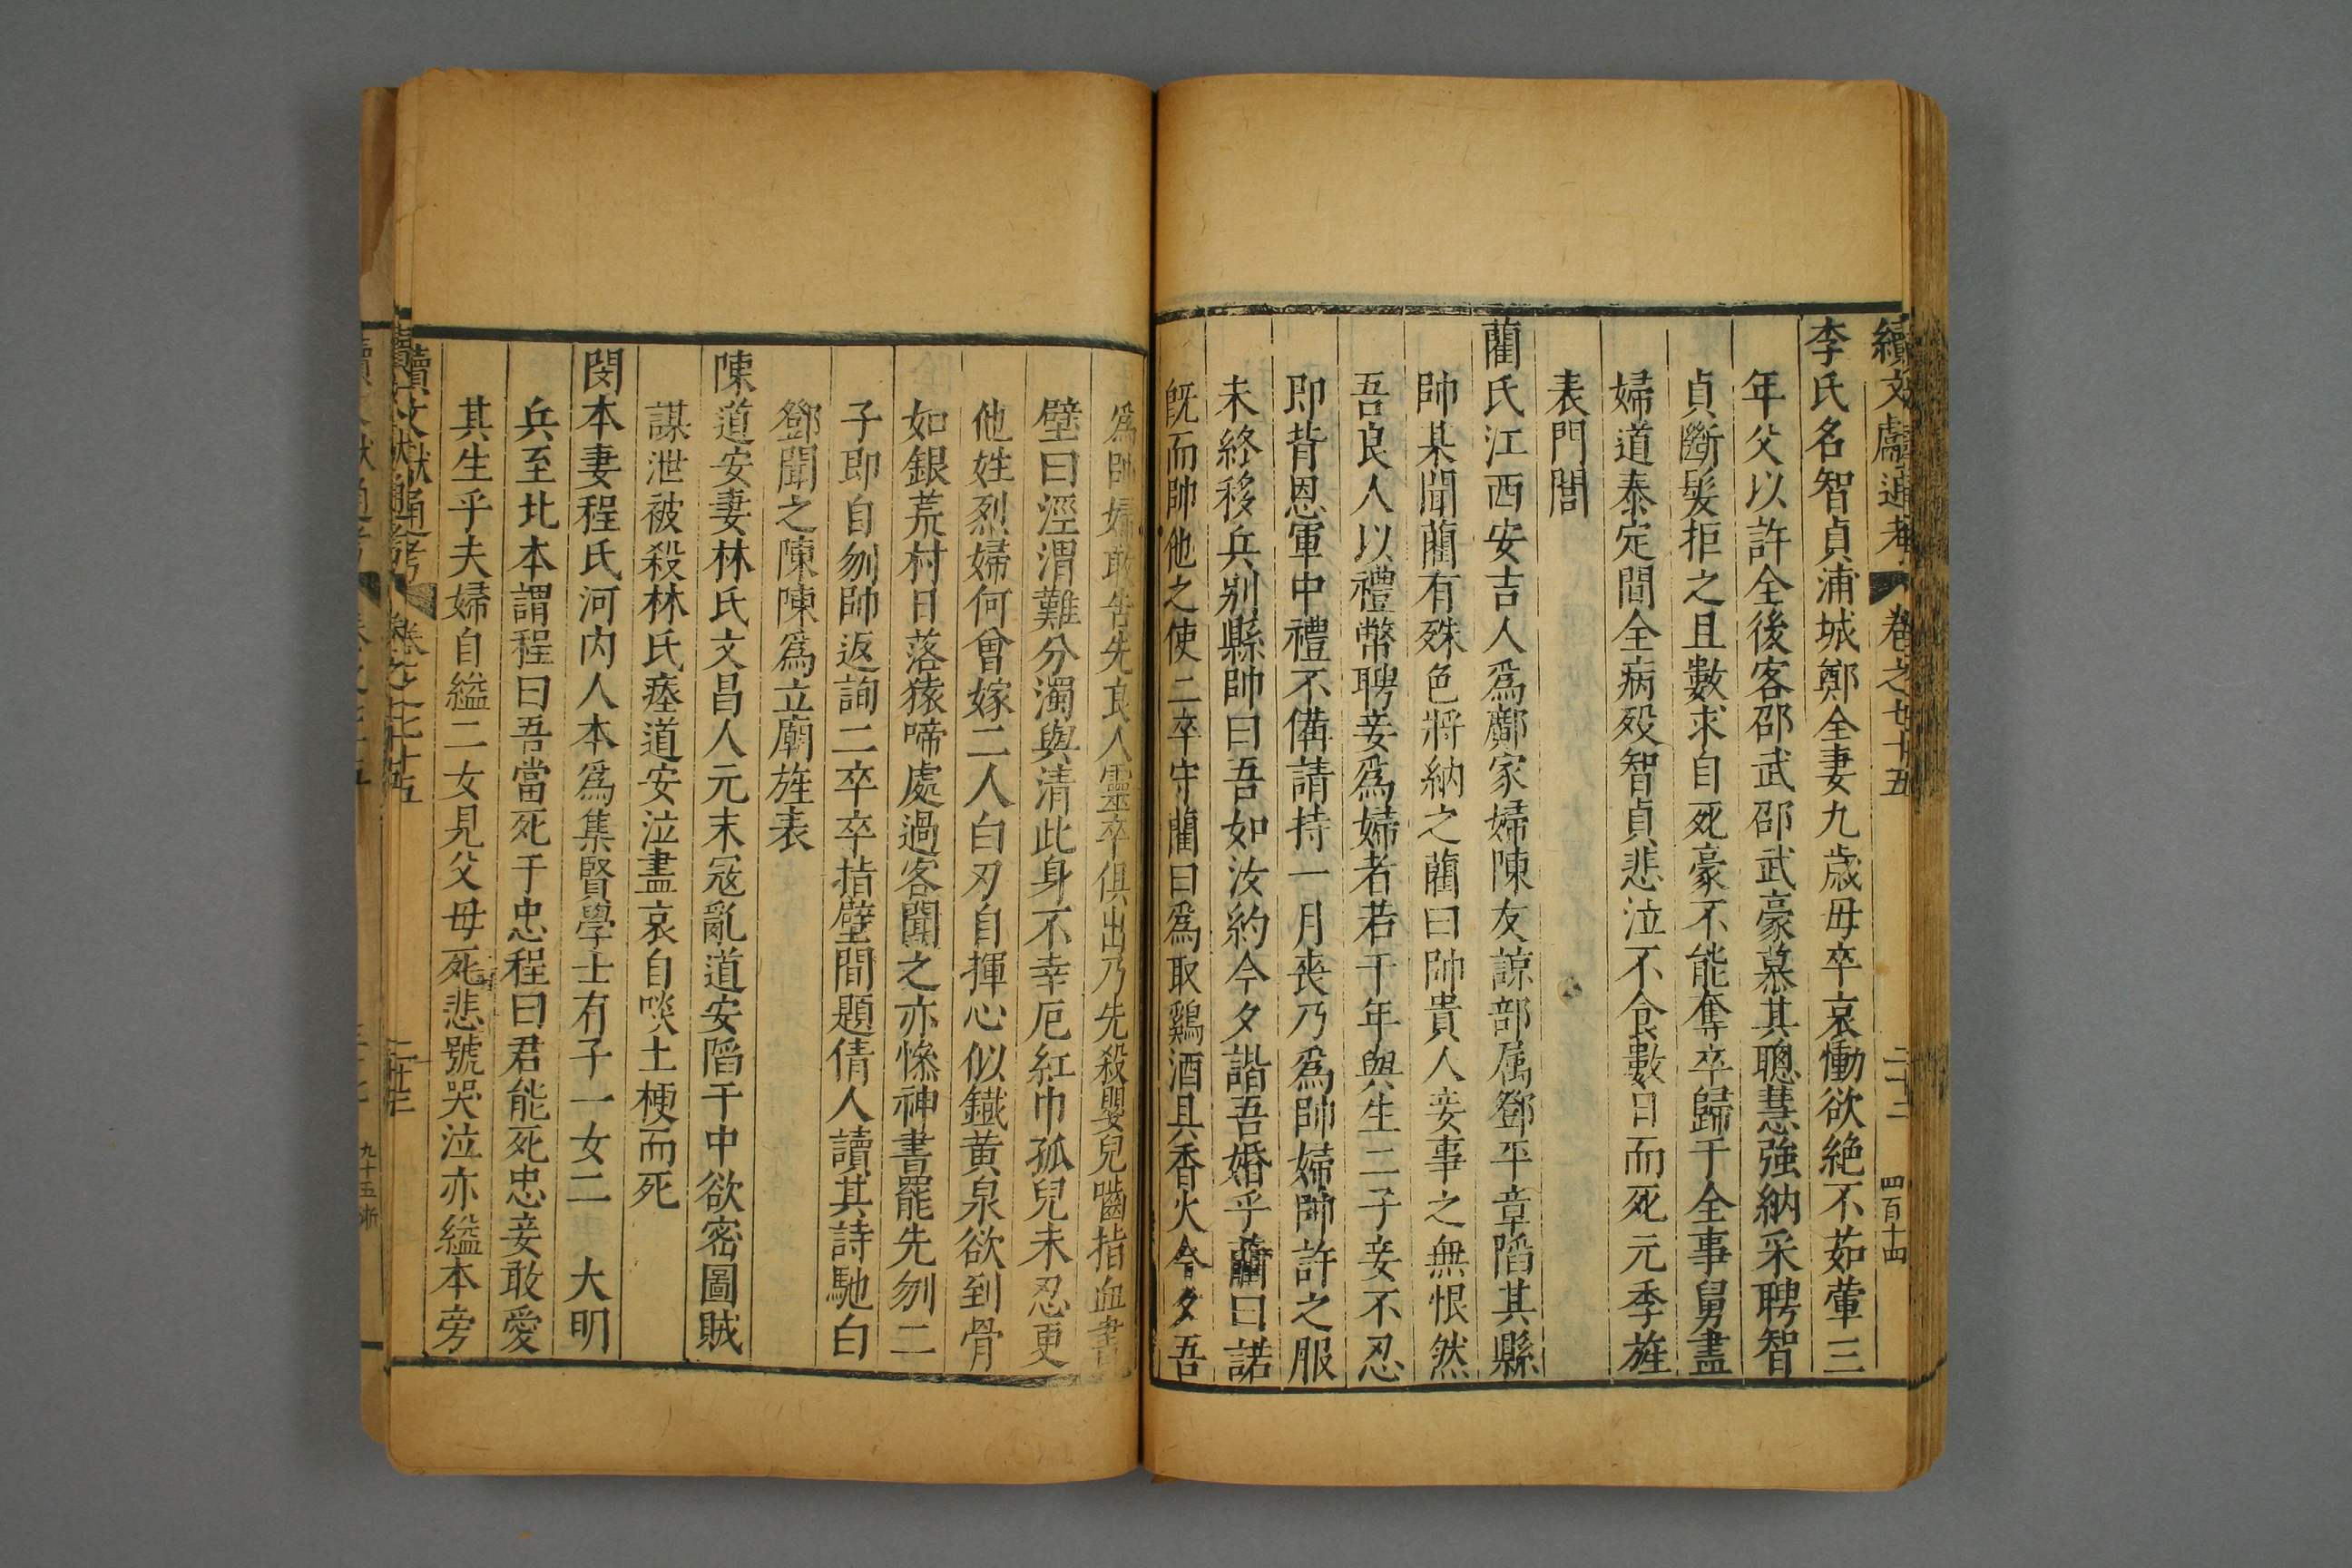 續文獻通考 卷之七十五 二十二 四百十四
李氏名智貞浦城鄭全妻九歲母卒哀慟欲絶不茹葷三
年父以許全後客邵武邵武豪慕其聰慧強納采聘智
貞斷髮拒之且數求自死豪不能奪卒歸于全事舅盡
婦道泰定間全病殁智貞悲泣不食數日而死元季旌
表門閭
藺氏江西安吉人爲鄺家婦陳友諒部属鄧平章陷其縣
帥某聞藺有殊色將納之藺曰帥貴人妾事之無恨然
吾良人以禮幣聘妾爲婦者若干年與生二子妾不忍
即背恩軍中禮不備請持一月喪乃爲帥婦帥許之服
未終移兵别縣帥曰吾如汝約今夕諧吾婚乎藺曰諾
旣而帥他之使二卒守藺曰爲取鷄酒具香火今夕吾
爲帥婦敢告先良人靈卒俱出乃先殺嬰兒嚙指血書
壁曰涇渭難分濁與清此身不幸厄紅巾孤兒未忍更
他姓烈婦何曾嫁二人白刃自揮心似鐵黄泉欲到骨
如銀荒村日落猿啼處過客聞之亦慘神書罷先刎二
子即自刎帥返詢二卒卒指壁間題倩人讀其詩馳白
鄧聞之陳陳爲立廟旌表
陳道安妻林氏文昌人元末冦亂道安陷干中欲密圖賊
謀泄被殺林氏瘞道安泣盡哀自啖土梗而死
閔本妻程氏河内人本爲集賢學士有子一女二 大明
兵至北本謂程曰吾當死于忠程曰君能死忠妾敢愛
其生乎夫婦自縊二女見父母死悲號哭泣亦縊本旁
續文獻通考 卷之七十五